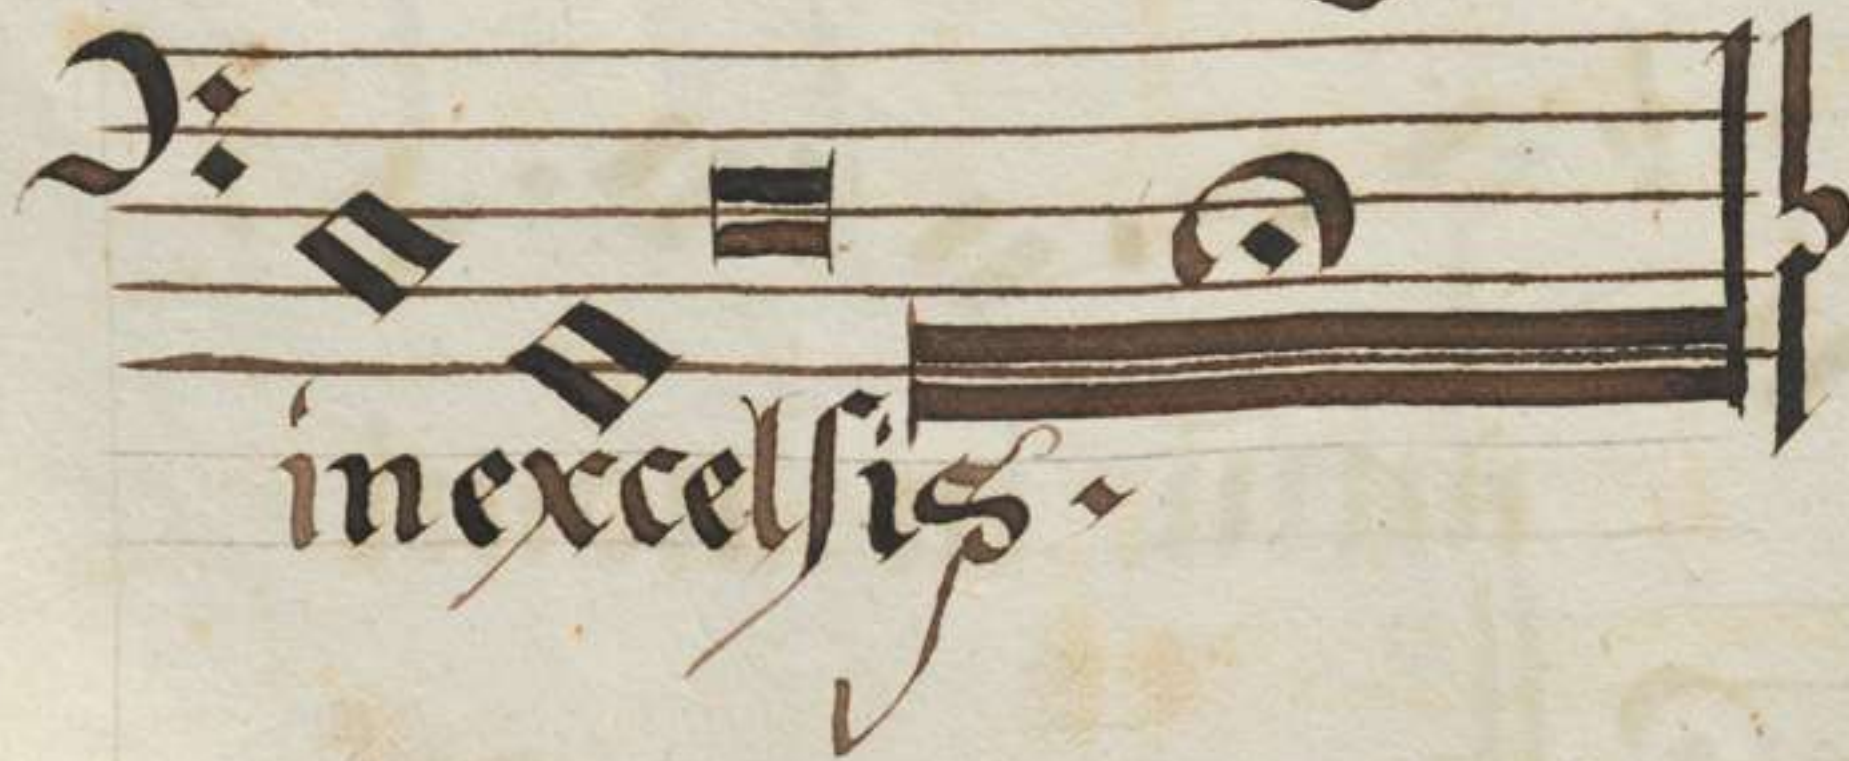 in excelsis .